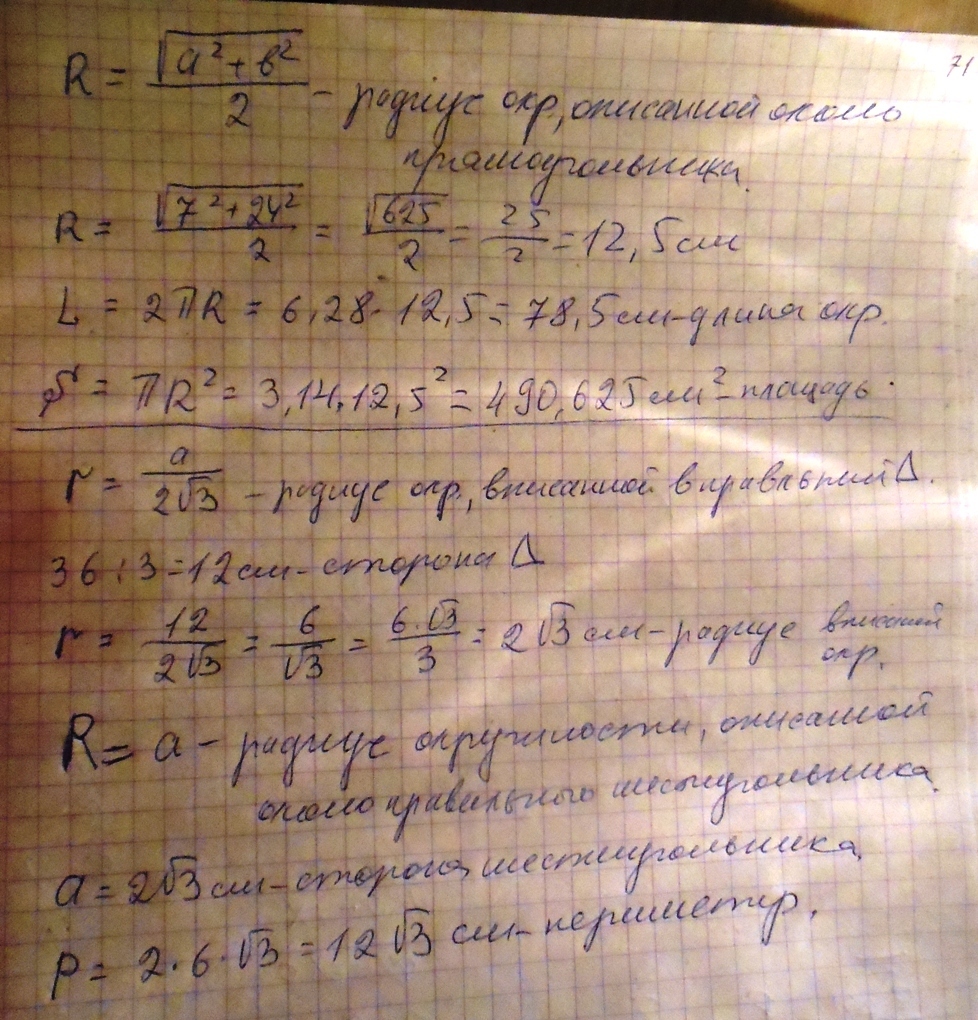 71
R = √(a² + b²) / 2 – радиус окр., описанной около
прямоугольника.
R = √(7² + 24²) / 2 = √625 / 2 = 25 / 2 = 12,5 см
L = 2πR = 6,28 · 12,5 = 78,5 см – длина окр.
S = πR² = 3,14 · 12,5² = 490,625 см² – площадь.
r = a / 2√3 – радиус окр., вписанной в правильный Δ.
36 : 3 = 12 см – сторона Δ
r = 12 / 2√3 = 6 / √3 = 6·√3 / 3 = 2√3 см – радиус вписанной окр.
R = a – радиус окружности, описанной
около правильного шестиугольника.
a = 2√3 см – сторона шестиугольника.
P = 2 · 6 · √3 = 12√3 см – периметр.